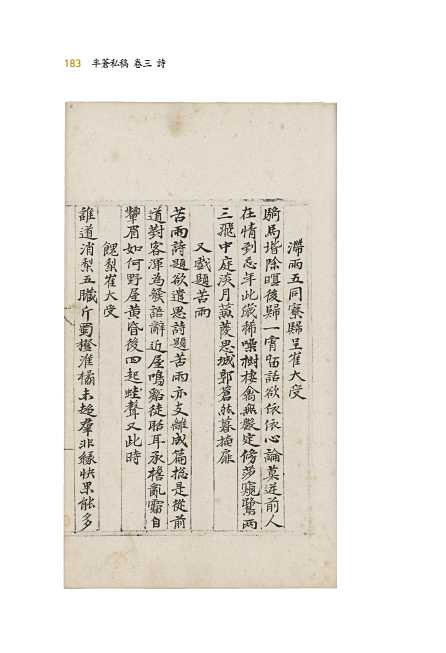 183 半蒼私稿 卷三 詩
滯雨五同寮歸呈崔大受
騎馬堦除暝後歸一宵留話欲依依心論莫逆前人
在情到忘年此歲稀噪樹棲禽無數定傍莎鷺兩
三飛中庭淡月蒹葭思城郭蒼茫暮掩扉
又戲題苦雨
苦雨詩題欲遣思詩題苦雨亦支離成篇摠是從前
道對客渾為發語辭近屋鳴谿徒聒耳承檐亂霤自
顰眉如何野屋黃昏後四起蛙聲又此時
餽梨崔大受
誰道消梨五臟斤蜀橙淮橘未超羣非緣快果能多